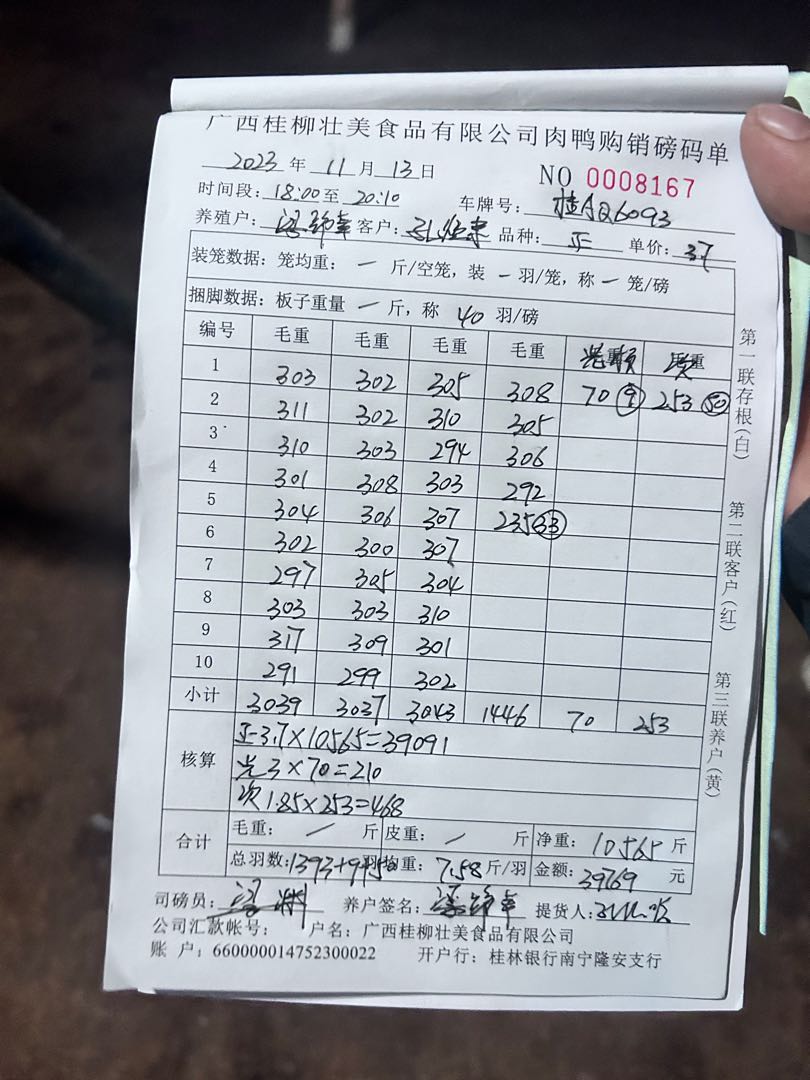 广西桂柳壮美食品有限公司肉鸭购销磅码单
2023 年 11 月 13 日 NO 0008167
时间段: 18:00 至 20:10 车牌号: 桂AQ6093
养殖户: 客户: 品种: 正 单价: 3.7
装笼数据: 笼均重: — 斤/空笼, 装 — 羽/笼, 称 — 笼/磅
捆脚数据: 板子重量 — 斤, 称 40 羽/磅
编号 毛重 毛重 毛重 毛重
1 303 302 305 308 70 9 253 50
2 311 302 310 305
3 310 303 294 306
4 301 308 303 292
5 304 306 307 235 33
6 302 300 307
7 297 305 304
8 303 303 310
9 317 309 301
10 291 299 302
小计 3039 3037 3043 1446 70 253
核算 正-3.7×10565=39091
光3×70=210
次1.85×253=468
合计 毛重: / 斤 皮重: / 斤 净重: 10565 斤
总羽数: 1393+9+50 羽 均重: 7.58 斤/羽 金额: 39769 元
司磅员: 养户签名: 提货人:
公司汇款帐号: 户名: 广西桂柳壮美食品有限公司
账 户: 660000014752300022 开户行: 桂林银行南宁隆安支行
第一联存根(白)
第二联客户(红)
第三联养户(黄)